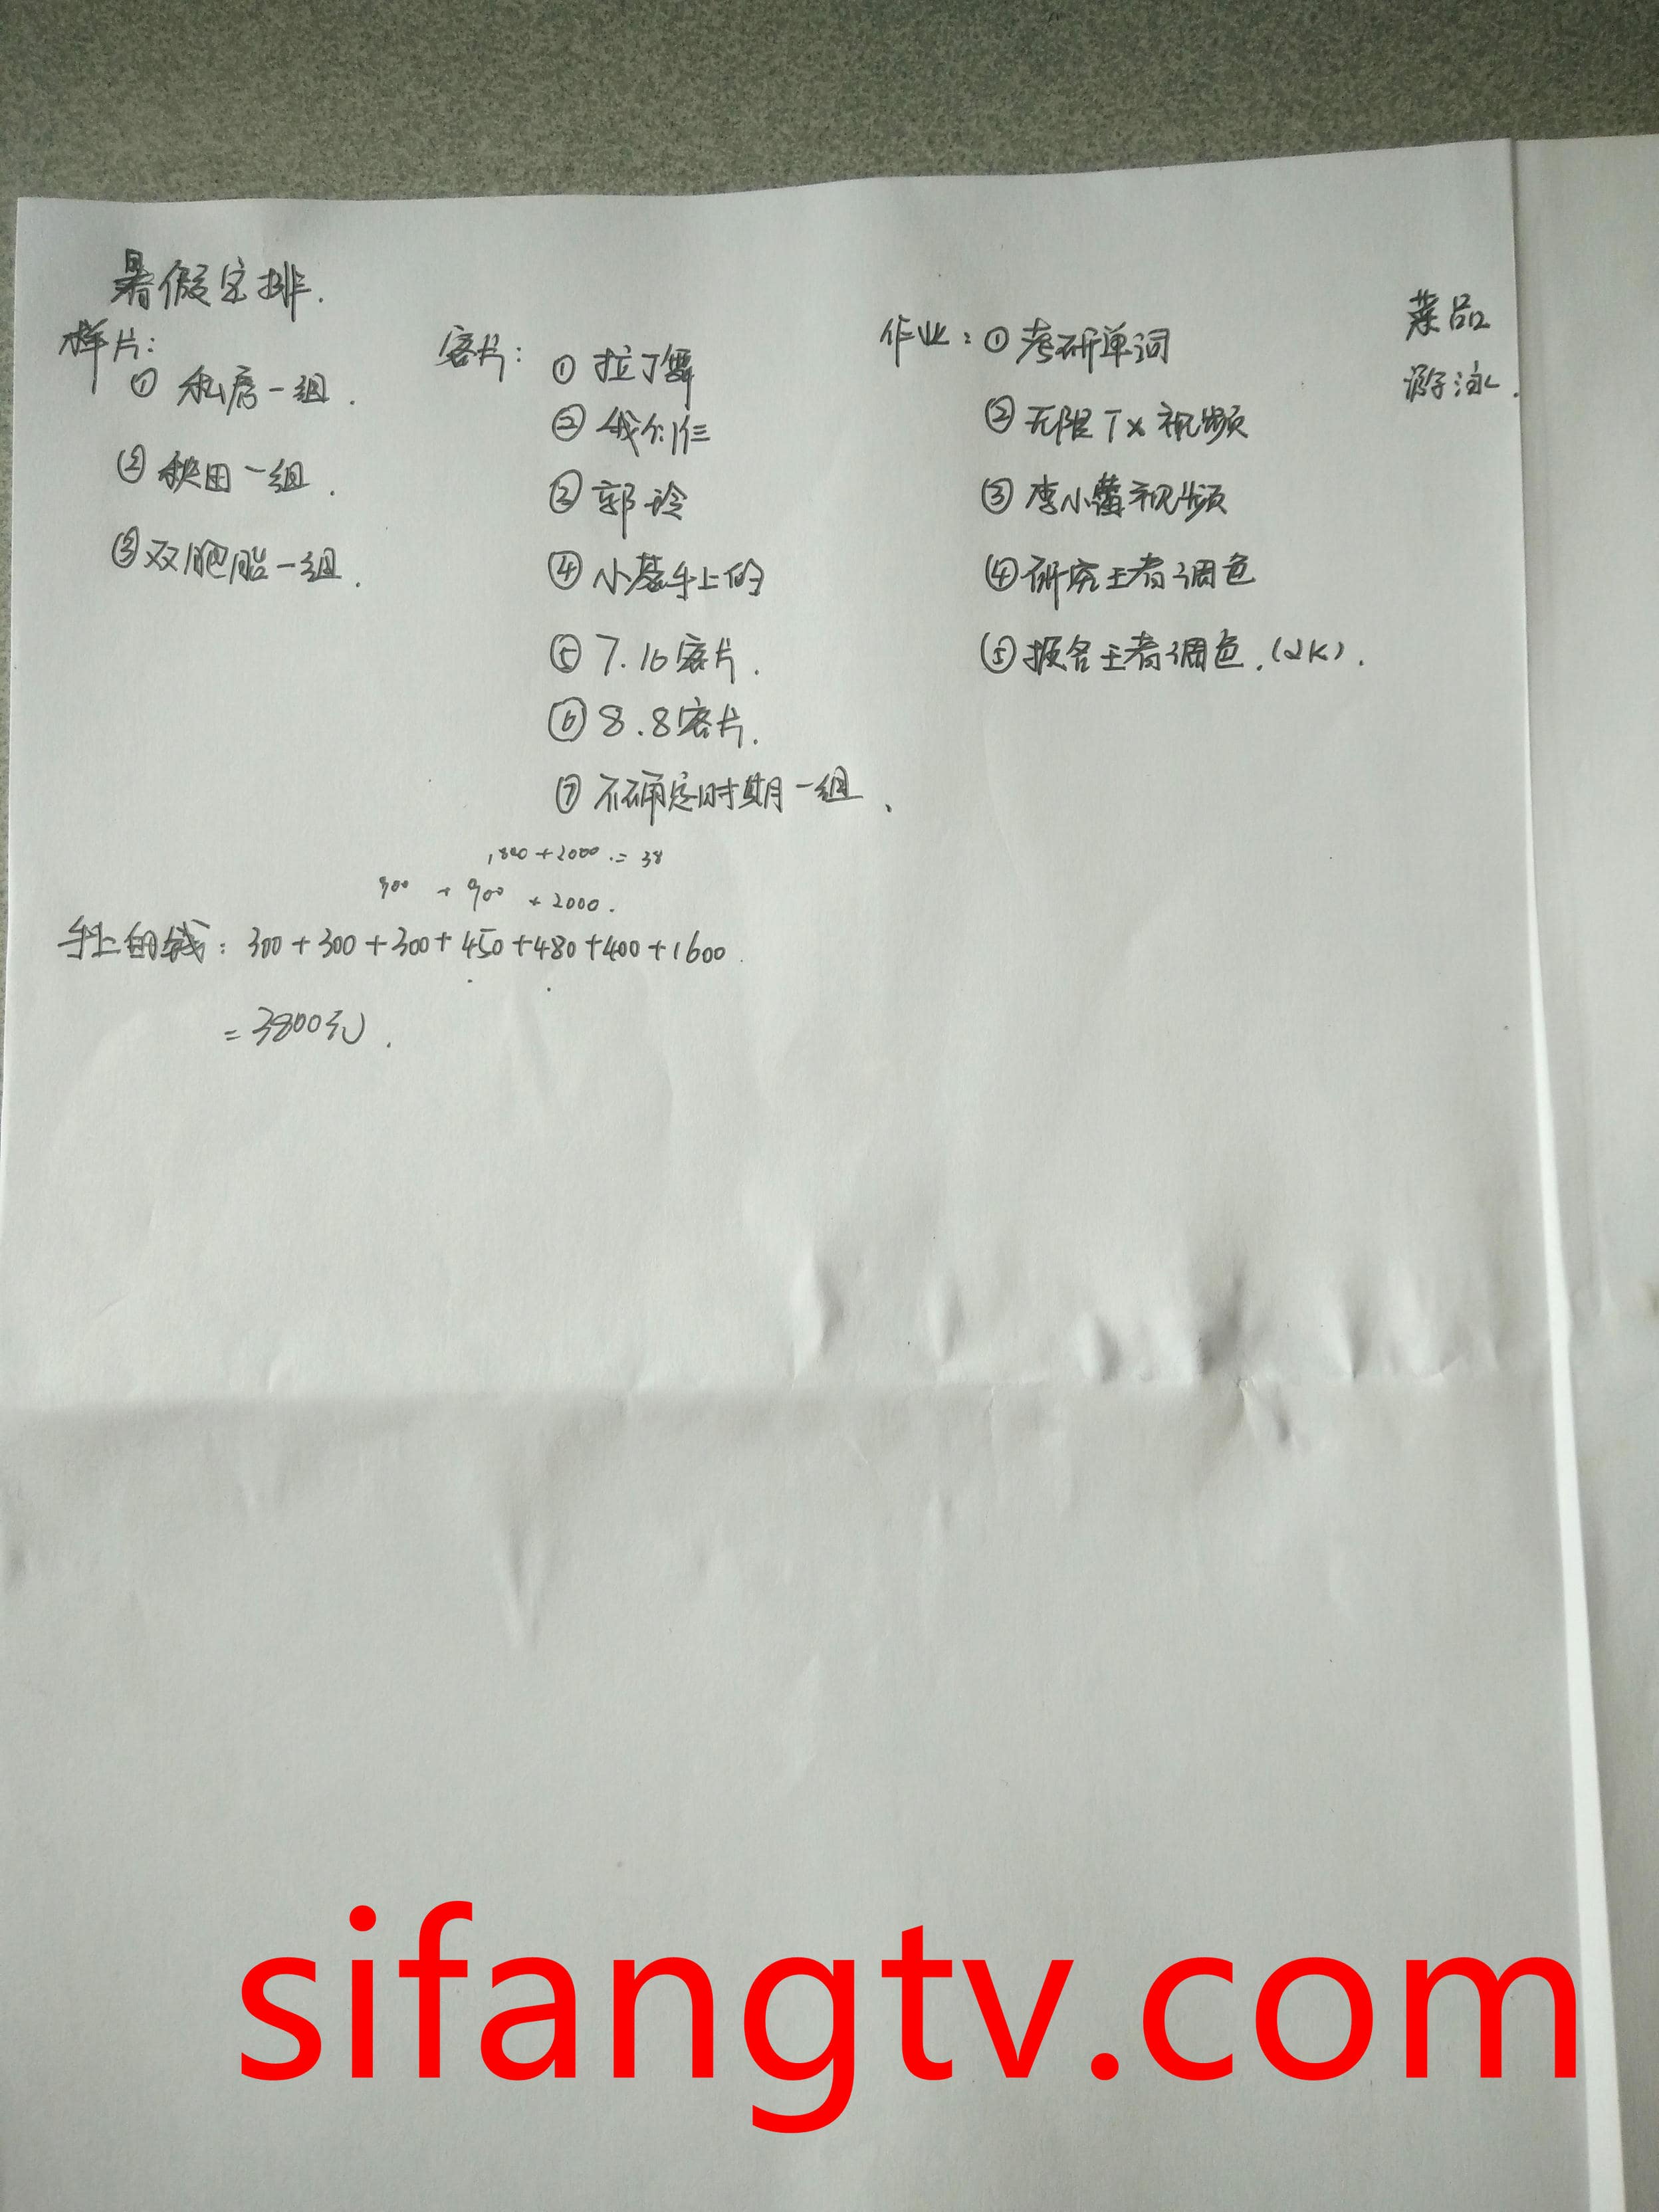 暑假安排.
样片:
① 私房一组.
② 秋田一组.
③ 双胞胎一组.
客片:
① 拉丁舞
② 我们仨
③ 郭玲
④ 小基手上的
⑤ 7.16客片.
⑥ 8.8客片.
⑦ 不确定时期一组、
作业: ① 考研单词
② 无限Tx视频
③ 李小蕾视频
④ 研究王者调色
⑤ 报名王者调色.(2K).
菜品
游泳.
1800+2000.=38
900 + 900 + 2000.
手上的钱: 300+300+300+450+480+400+1600.
=3800元.
sifangtv.com